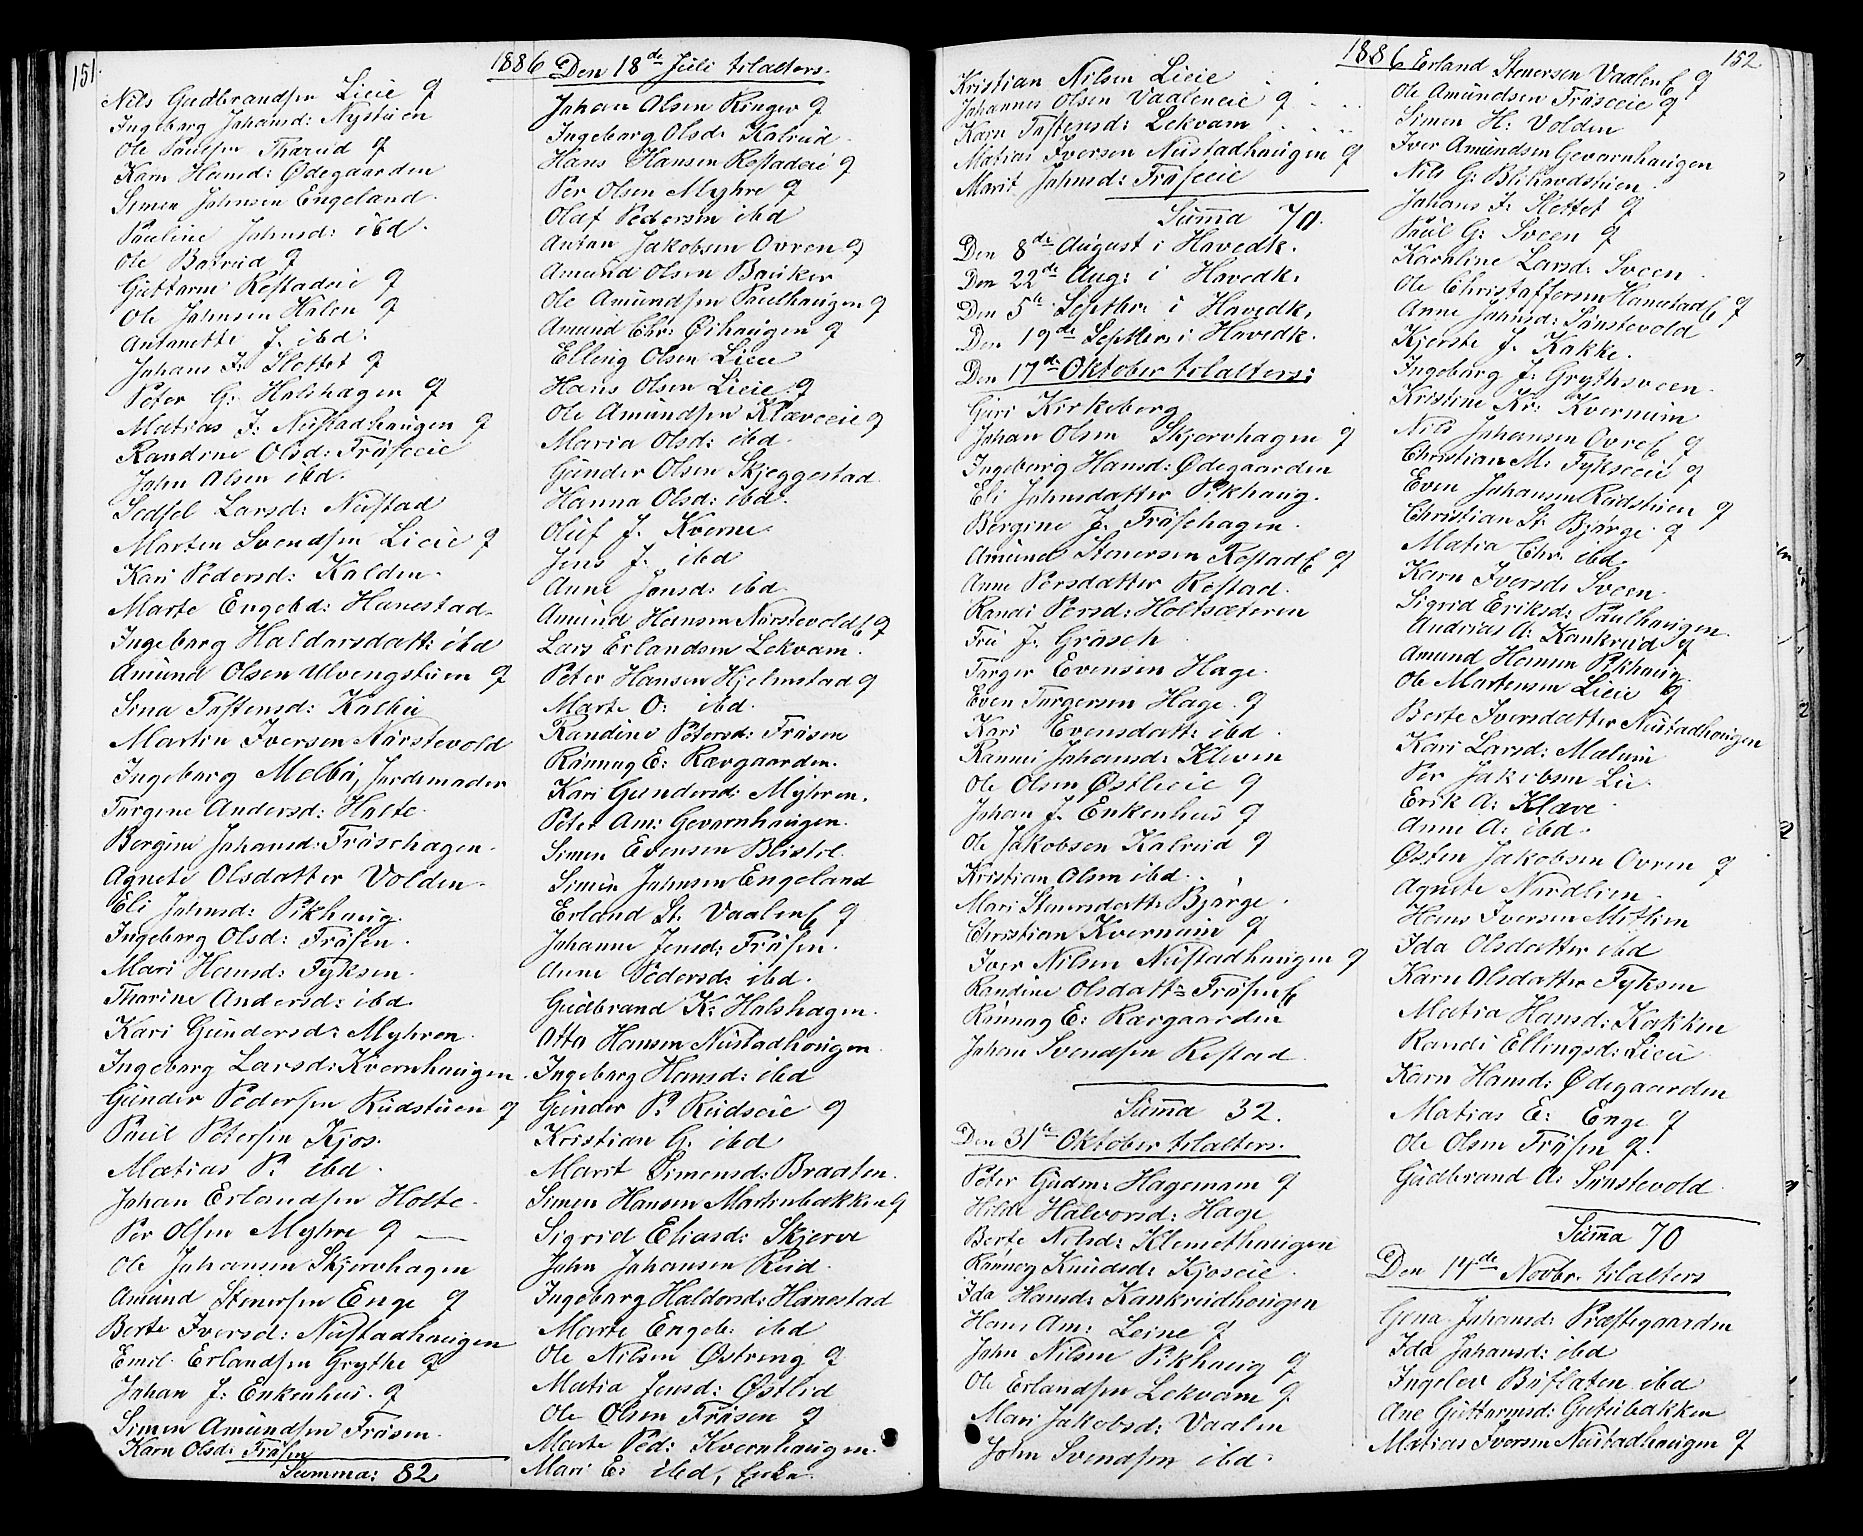 151.
1886
Nils Gudbrandsen Lieie g
Ingeborg Johansd: Nystuen
Ole Paulsen Tharud g
Karn Hansd: Ødegaarden
Simen Johnsen Engeland.
Pauline Johnsd: ibd.
Ole Barud g
Guttorm Rostadeie g
Ole Johnsen Kalen g
Antonette J. ibd.
Johans J. Slettet g
Peter G. Halshagen g
Matias J: Nustadhaugen g
Randine Olsd: Fröseeie
John Olsen ibd.
Sedsel Larsd: Nustad
Marten Svendsen Lieie g
Kari Pedersd: Kalden.
Marte Engebd: Hanestad.
Ingeborg Haldorsdatt: ibd
Amund Olsen Ulvengstuen g
Sina Tostensd: Kalbu
Martin Iversen Nörstevold
Ingeborg Melbü, Jordemoder
Torgine Andersd: Holte.
Bergine Johansd: Fröschagen.
Agnete Olsdatter Volden.
Eli Johnsd: Pikhaug.
Ingeborg Olsd: Frösen.
Mari Hansd: Tyksen.
Thorine Andersd: ibd.
Kari Gundersd: Myhren.
Ingeborg Larsd: Kvernhaugen.
Gunder Pedersen Rudstuen g
Paul Petersen Kjos.
Matias P. ibd.
Johan Erlandsen Holte.
Per Olsen Myhre g —
Ole Johansen Skjervhagen
Amund Stenersen Enge g
Berte Iversd: Nustadhaugen
Emil Erlandsen Grythe g
Johan J: Enkenhus. g
Simen Amundsen Frösen.
Karn Olsd: Frösen
Summa: 82
Den 18de Juli tilalters.
Johan Olsen Ringer g
Ingeborg Olsd: Kalrud.
Hans Hansen Rostadeie g
Per Olsen Myhre g
Olaf Pedersen ibd
Anton Jakobsen Ovren g
Amund Olsen Bauker
Ole Amundsen Paulhaugen g
Amund Chr: Öihaugen g
Elling Olsen Lieie
Hans Olsen Lieie g
Ole Amundsen Klæveeie g
Maria Olsd: ibd.
Gunder Olsen Skjeggestad.
Hanna Olsd: ibd.
Oluf J. Kverne.
Jens J. ibd
Anne Jonsd: ibd.
Amund Hansen Nörstevold g
Lars Erlandsen Lekvam.
Peter Hansen Hjelmstad g
Marte O: ibd.
Randine Petersd: Frösen
Rönnug E: Rævgaarden.
Kari Gundersd: Myhren.
Peter Am: Gevarnhaugen.
Simen Evensen Blistil.
Simen Johnsen Engeland
Erland St. Vaalen g
Johanne Jensd: Frösen.
Anne Pedersd: ibd.
Gudbrand K: Halshagen.
Otto Hansen Nustadhougen
Ingeborg Hansd: ibd
Gunder P. Rudseie g
Kristian G. ibd
Marit Simensd: Braaten.
Simen Hansen Martinbakken g
Sigrid Eliasd: Skjerve
John Johansen Rud.
Ingeborg Haldorsd: Hanestad
Marte Engeb: ibd
Ole Nilsen Østreng g
Matia Jensd: Østlid
Ole Olsen Frösen g
Marte Ped: Kvernhaugen.
Mari E: ibd, Enke.
1886
152
Kristian Nilsen Lieie
Johannes Olsen Vaaleneie g
Karn Tostensd: Lekvam
Matias Iversen Nustadhaugen g
Marit Johnsd: Fröseeie
Summa 70.
Den 8de August i Havedk.
Den 22de Aug: i Havedk.
Den 5te Septbr. i Havedk.
Den 19de Septbr. i Havedk.
Den 17de Oktober tilalters:
Guri Kirkeberg
Johan Olsen Skjervhagen g
Ingeborg Hansd: Ødegaarden
Eli Johnsdatter Pikhaug.
Bergine J. Fröschagen.
Amund Stenersen Rostad g
Anne Persdatter Rostad.
Randi Persd: Holtsæteren
Fru J. Grösch
Torger Evensen Hage.
Even Torgersen Hage. g
Kari Evensdatt: ibd.
Rannei Johansd: Kleven
Ole Olsen Østlieie g
Johan J. Enkenhus g
Ole Jakobsen Kalrud g
Kristian Olsen ibd.
Mari Stenersdatt: Bjørge.
Christian Kvernum g
Iver Nilsen Nustadhaugen g
Randine Olsdatt: Frösen
Rönnog E: Rævgaarden
Johan Svendsen Rostad.
Summa 32.
Den 31te Oktober tilalters.
Peter Gudm: Hagemam g
Hilda Halvorsd: Hage
Berte Nilsd: Klemethaugen
Rönnog Knudsd: Kjoseie.
Ida Hansd: Kankrudhougen
Hans Am: Leine g
John Nilsen Pikhaug g
Ole Erlandsen Lekvam g
Mari Jakobsd: Vaalen
John Svendsen ibd.
Erland Stenersen Vaalen g
Ole Amundsen Fröseeie g
Simen H: Volden
Iver Amundsen Gevarnhaugen
Nils G: Blikardstuen.
Johans J. Slettet g
Paul G: Sveen g
Karoline Larsd: Sveen.
Ole Christoffersen Hanestad g
Anne Johnsd: Sönstevold
Kjerste J. Kakke.
Ingeborg J. Grythsveen.
Kristine Kr: Kvernum
Nils Johansen Ovre g
Christian M: Tykseeie g
Even Johansen Rudstuen g
Christian St. Bjørge g
Matia Chr. ibd.
Karn Iversd: Sveen.
Sigrid Eriksd: Paulhaugen.
Andreas A: Kankrud g
Amund Hansen Pikhaug.
Ole Martensen Lieie g
Berte Iversdatter Nustadhaugen
Kari Larsd: Malum
Per Jakobsen Lie.
Erik A: Klæve.
Anne A: ibd.
Østen Jakobsen Ovren g
Agnete Nordlien.
Hans Iversen Mitlien
Ida Olsdatter ibd
Karn Olsdatter Tyksen
Matia Hansd: Kakken
Randi Ellingsd: Lieie
Karn Hansd: Ødegaarden
Matias E: Enge g
Ole Olsen Frösen g.
Gudbrand A: Sönstevold.
Summa 70
Den 14de Novbr. tilalters
Gena Johansd: Præstegaarden
Ida Johansd: ibd
Ingelev Buflaten ibd
Ane Guttormsd: Gutubakken
Matias Iversen Nustadhaugen g